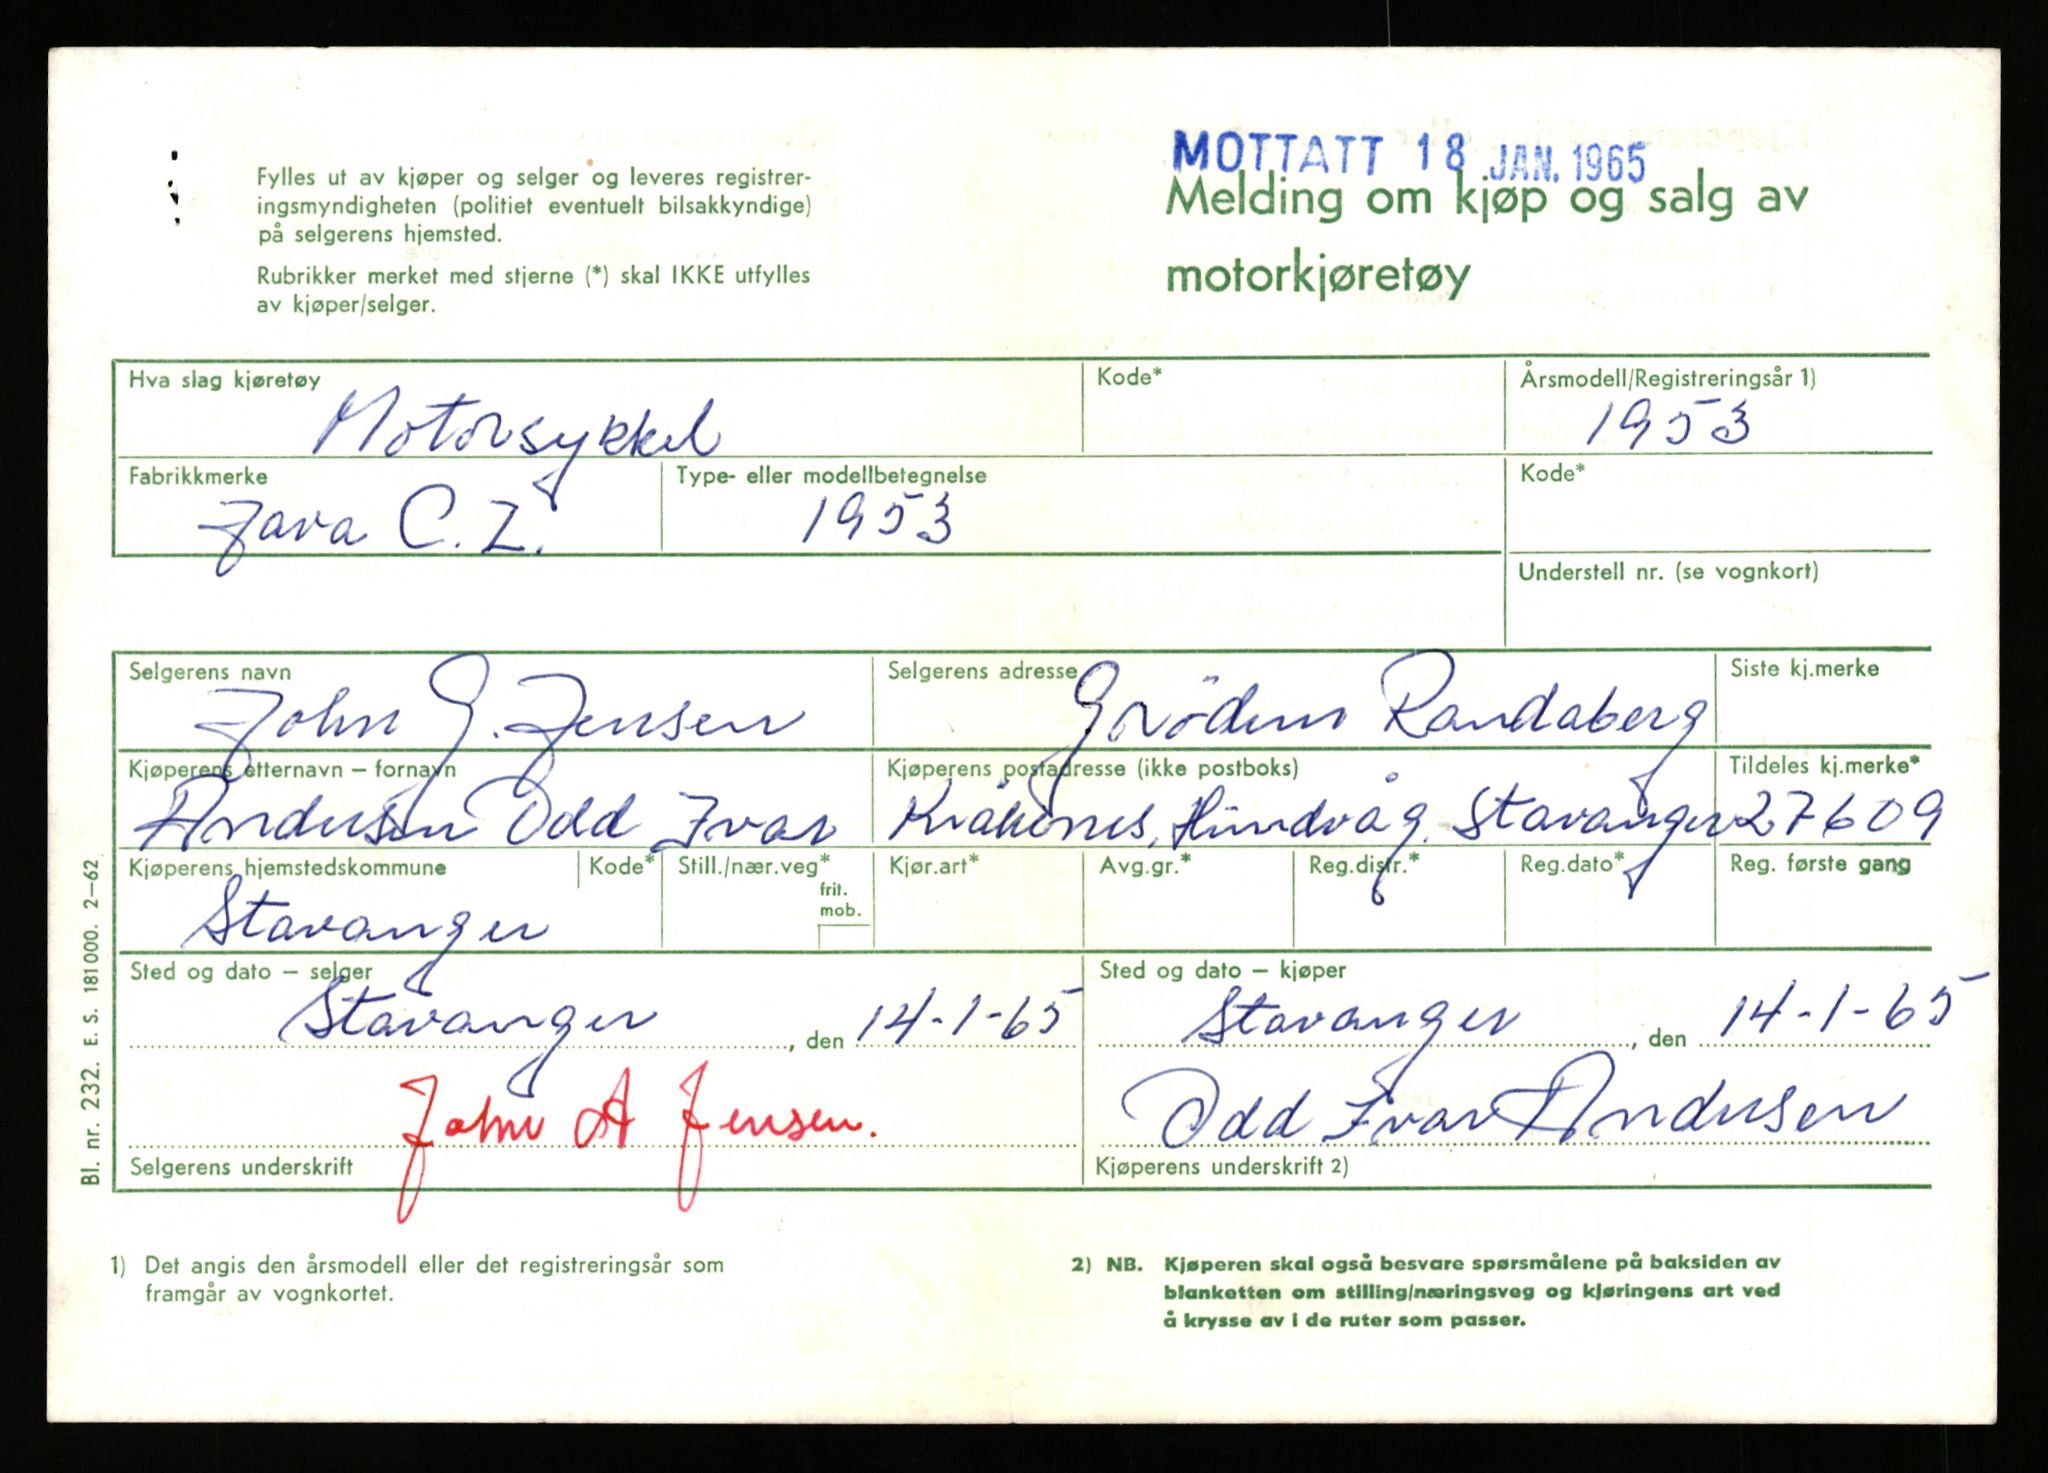 MOTTATT 18 JAN. 1965
Fylles ut av kjøper og selger og leveres registrer-
ingsmyndigheten (politiet eventuelt bilsakkyndige)
på selgerens hjemsted.
Rubrikker merket med stjerne (*) skal IKKE utfylles
av kjøper/selger.
Melding om kjøp og salg av
motorkjøretøy
Hva slag kjøretøy Kode* Årsmodell/Registreringsår 1)
Motorsykkel 1953
Fabrikkmerke Type- eller modellbetegnelse Kode*
Java C. Z. 1953
Understell nr. (se vognkort)
Selgerens navn Selgerens adresse Siste kj.merke
John G. Jensen Grödem Randaberg
Kjøperens etternavn – fornavn Kjøperens postadresse (ikke postboks) Tildeles kj.merke*
Andersen Odd Ivar Kråkenes, Hundvåg, Stavanger 27609
Kjøperens hjemstedskommune Kode* Still./nær.veg* Kjør.art* Avg.gr.* Reg.distr.* Reg.dato* Reg. første gang
frit.
mob.
Stavanger
Sted og dato – selger Sted og dato – kjøper
Stavanger, den 14-1-65 Stavanger, den 14-1-65
John A Jensen. Odd Ivar Andersen
Selgerens underskrift Kjøperens underskrift 2)
Bl. nr. 232. E. S. 181 000. 2–62
1) Det angis den årsmodell eller det registreringsår som
framgår av vognkortet.
2) NB. Kjøperen skal også besvare spørsmålene på baksiden av
blanketten om stilling/næringsveg og kjøringens art ved
å krysse av i de ruter som passer.